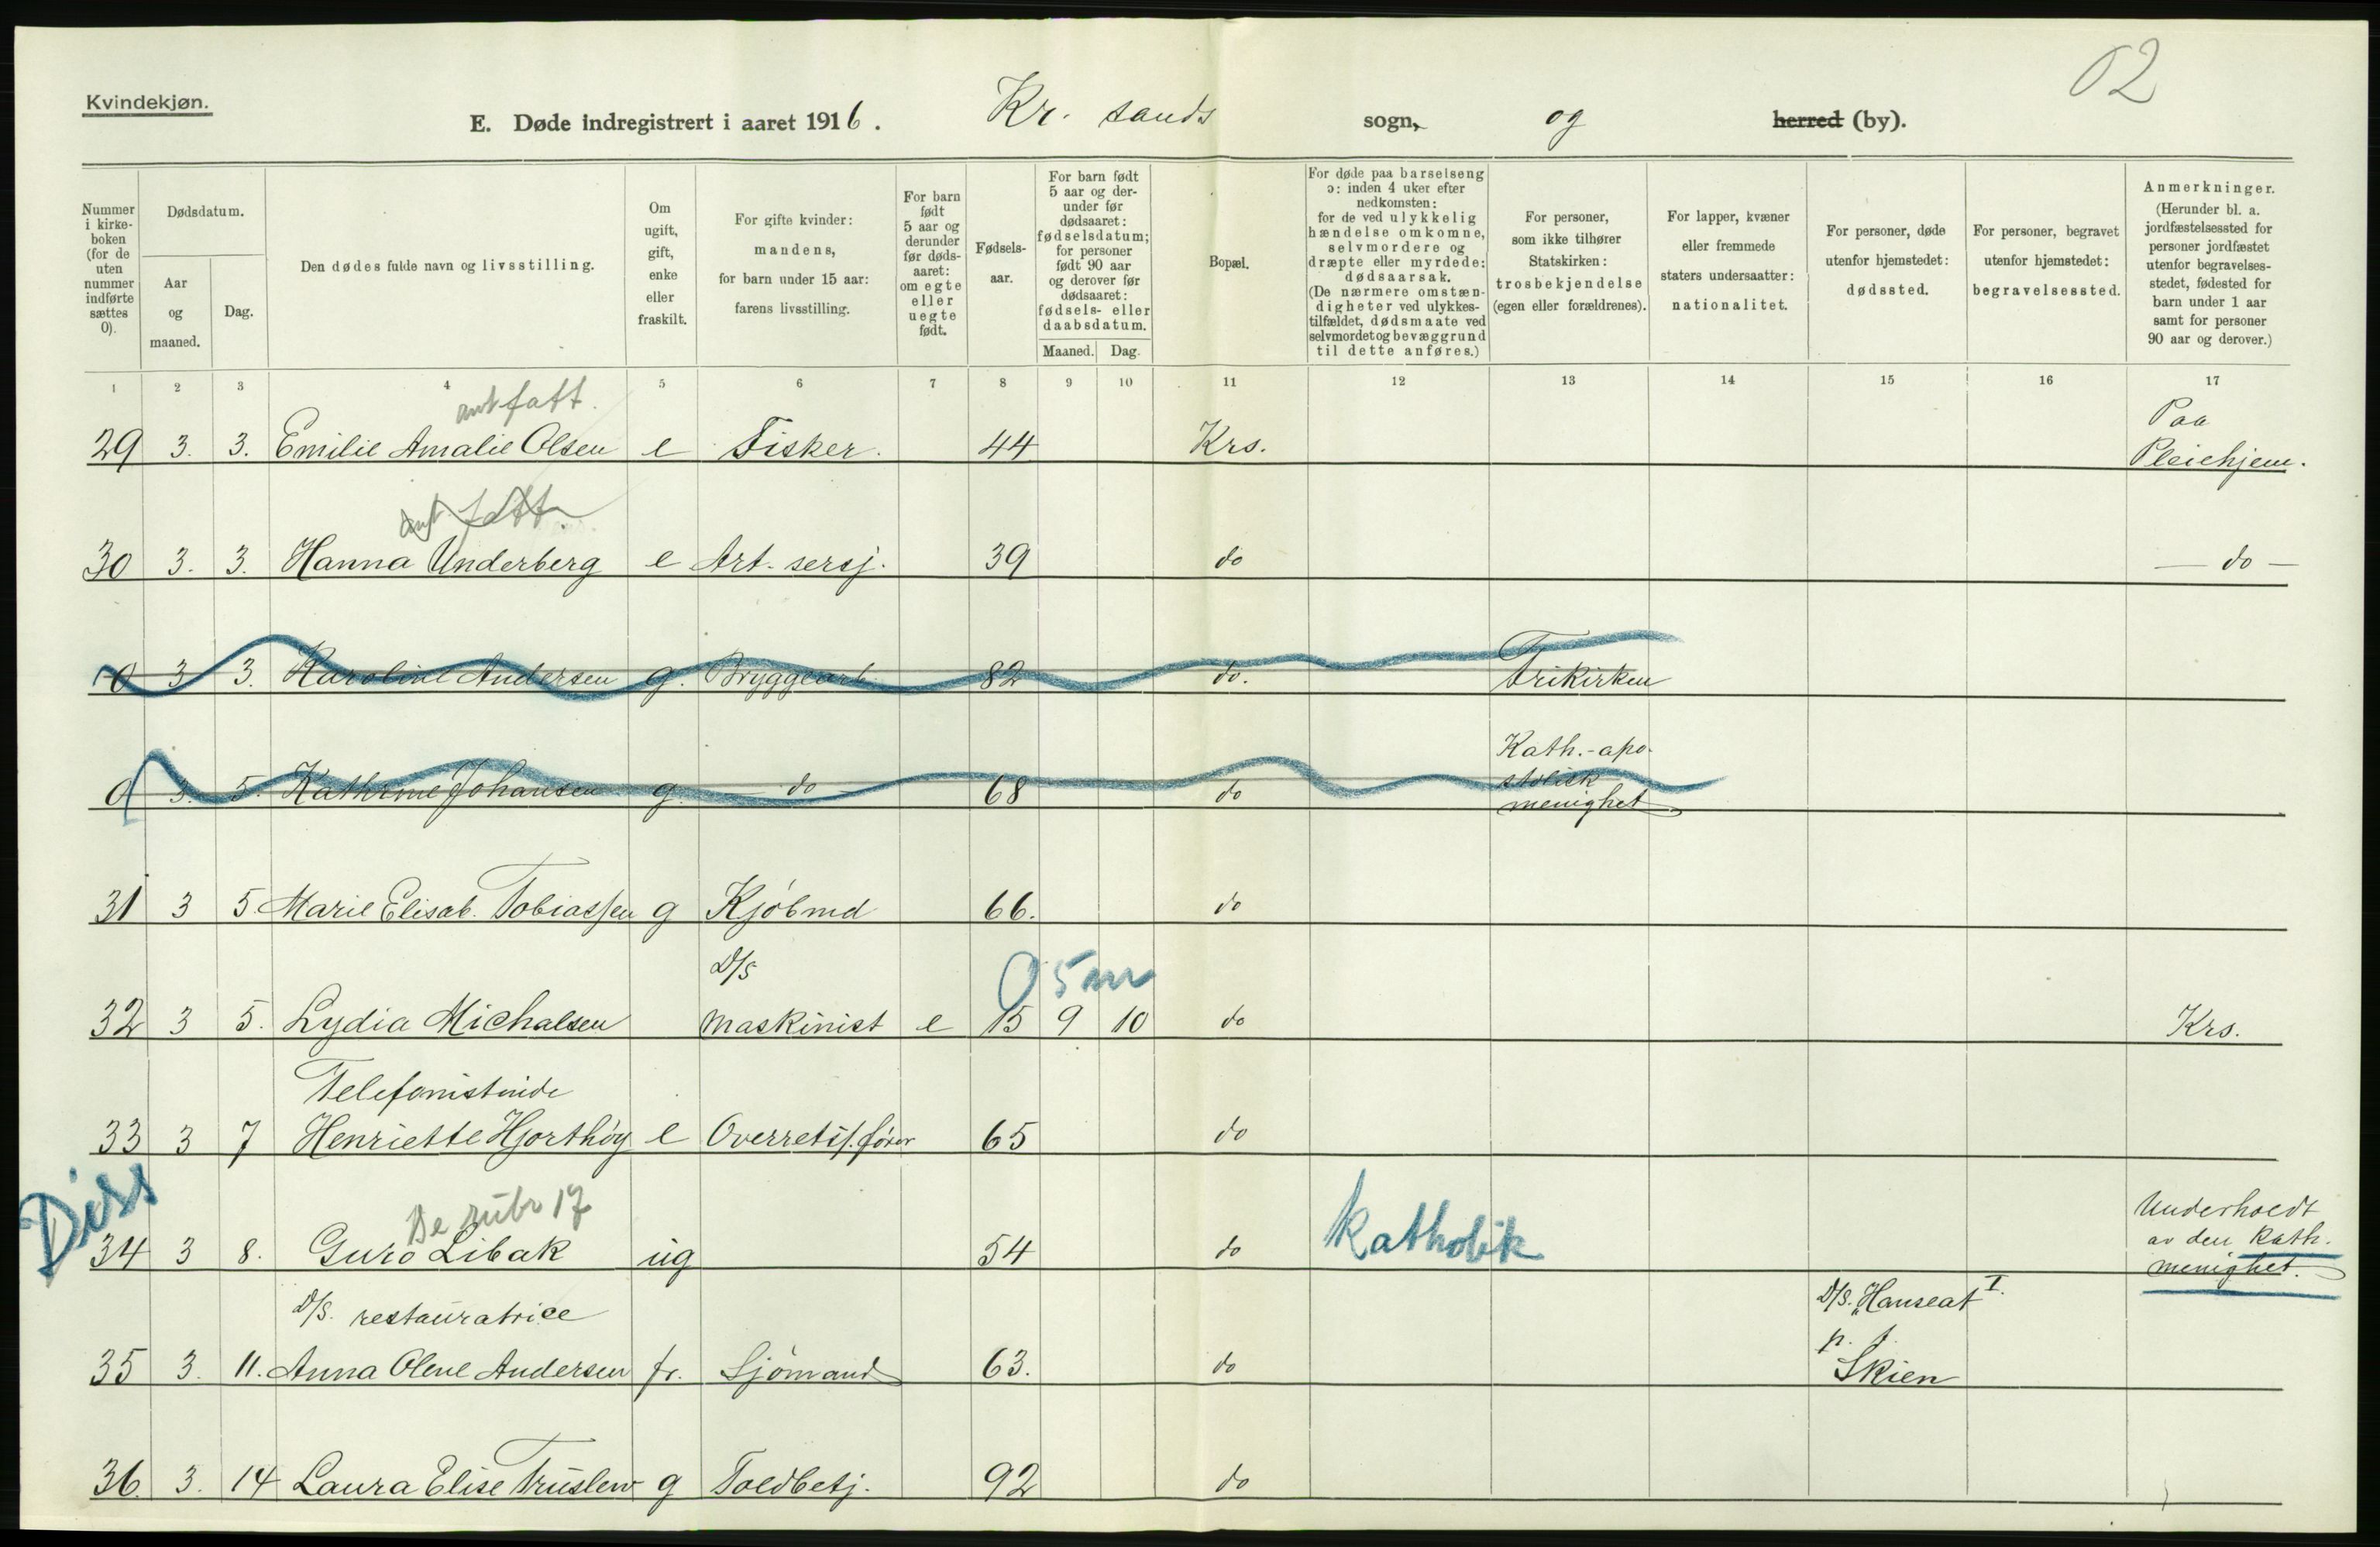 Kvindekjøn.
02
E. Døde indregistrert i aaret 1916. Kr. sands sogn, og herred (by).
Nummer i kirke-boken (for de uten nummer indførte sættes 0).
Dødsdatum.
Aar og maaned.
Dag.
Den dødes fulde navn og livsstilling.
Om ugift, gift, enke eller fraskilt.
For gifte kvinder: mandens, for barn under 15 aar: farens livsstilling.
For barn født 5 aar og derunder før døds-aaret: om egte eller uegte født.
Fødsels-aar.
For barn født 5 aar og der-under før dødsaaret: fødselsdatum; for personer født 90 aar og derover før dødsaaret: fødsels- eller daabsdatum.
Maaned. Dag.
Bopæl.
For døde paa barselseng ɔ: inden 4 uker efter nedkomsten: for de ved ulykkelig hændelse omkomne, selvmordere og dræpte eller myrdede: dødsaarsak. (De nærmere omstæn-digheter ved ulykkes-tilfældet, dødsmaate ved selvmordet og bevæggrund til dette anføres.)
For personer, som ikke tilhører Statskirken: trosbekjendelse (egen eller forældrenes).
For lapper, kvæner eller fremmede staters undersaatter: nationalitet.
For personer, døde utenfor hjemstedet: dødssted.
For personer, begravet utenfor hjemstedet: begravelsessted.
Anmerkninger. (Herunder bl. a. jordfæstelsessted for personer jordfæstet utenfor begravelses-stedet, fødested for barn under 1 aar samt for personer 90 aar og derover.)
1 2 3 4 5 6 7 8 9 10 11 12 13 14 15 16 17
fatt.
Paa
29 3. 3. Emilie Amalie Olsen e Fisker. 44 Krs. Pleiehjem.
fatt
30 3. 3. Hanna Underberg e Art. sersj. 39 do — do —
0 3 3. Karoline Andersen g. Bryggearb. 82 do. Frikirken
Kath.-apo-
stolisk
0 3. 5. Kathrine Johansen g. do 68 do menighet
31 3 5. Marie Elisab. Tobiassen g Kjöbmd 66. do
D/S
5 aar
32 3 5. Lydia Michalsen maskinist e 15 9 10 do Krs.
Telefonistinde
33 3 7 Henriette Hjorthöy e Overretss.förer 65 do
Diss
Se rubr 17
Underholdt
av den Kath.
34 3 8. Guro Libak ug 54 do Katholik menighet.
D/S. restauratrice
D/S. "Hanseat" I.
p. t.
35 3. 11. Anna Olene Andersen fr. Sjömand 63. do Skien
36. 3. 14 Laura Elise Truslew g Toldbetj. 92 do